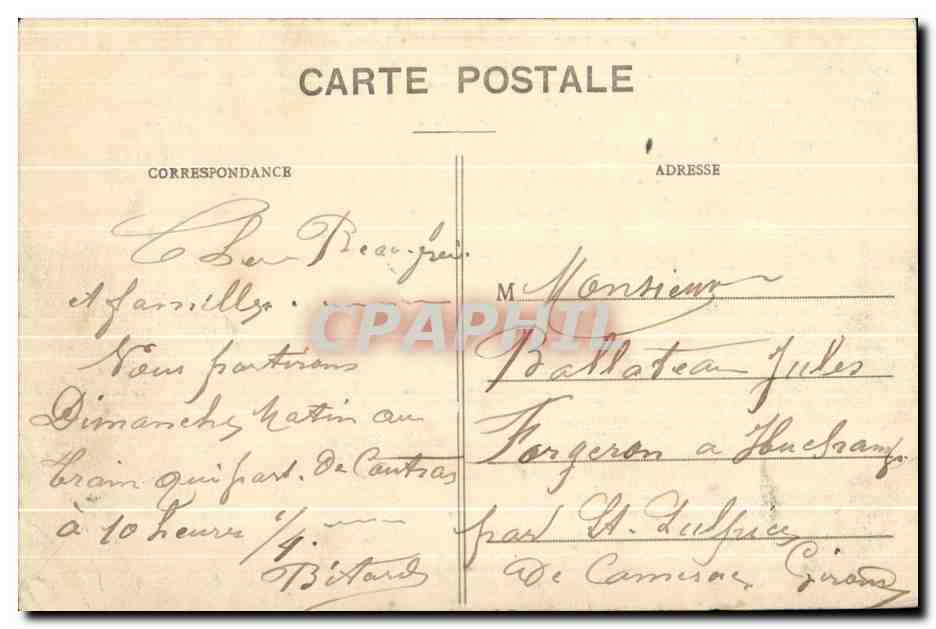 CARTE POSTALE
CORRESPONDANCE
Cher Beau-frère
et famille
Nous partirons
Dimanche Matin au
train qui part. De Coutras
à 10 heures 1/4.
Bitard
ADRESSE
M Monsieur
Ballateau Jules
Forgeron a
par St. Sulpice
De Camersac Gironde
CPAPHIL